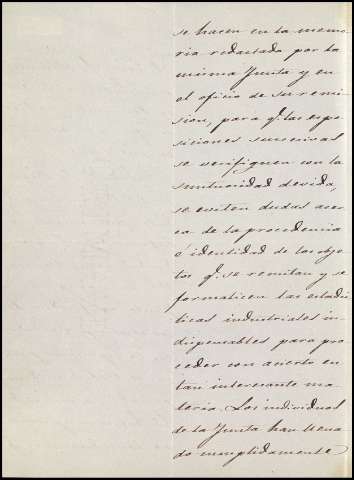 se hacen en la memo-
ria redactada por la
misma Junta y en
el oficio de su remi-
sion, para q.e las espo-
siciones sucesivas
se verifiquen con la
suntuosidad devida,
se eviten dudas acer-
ca de la procedencia
ó identidad de los obje-
tos q.e se remitan y se
formalicen las estadis-
ticas industriales in-
dispensables para pro-
ceder con acierto en
tan interesante ma-
teria. Los individuos
de la Junta han llena-
do cumplidamente